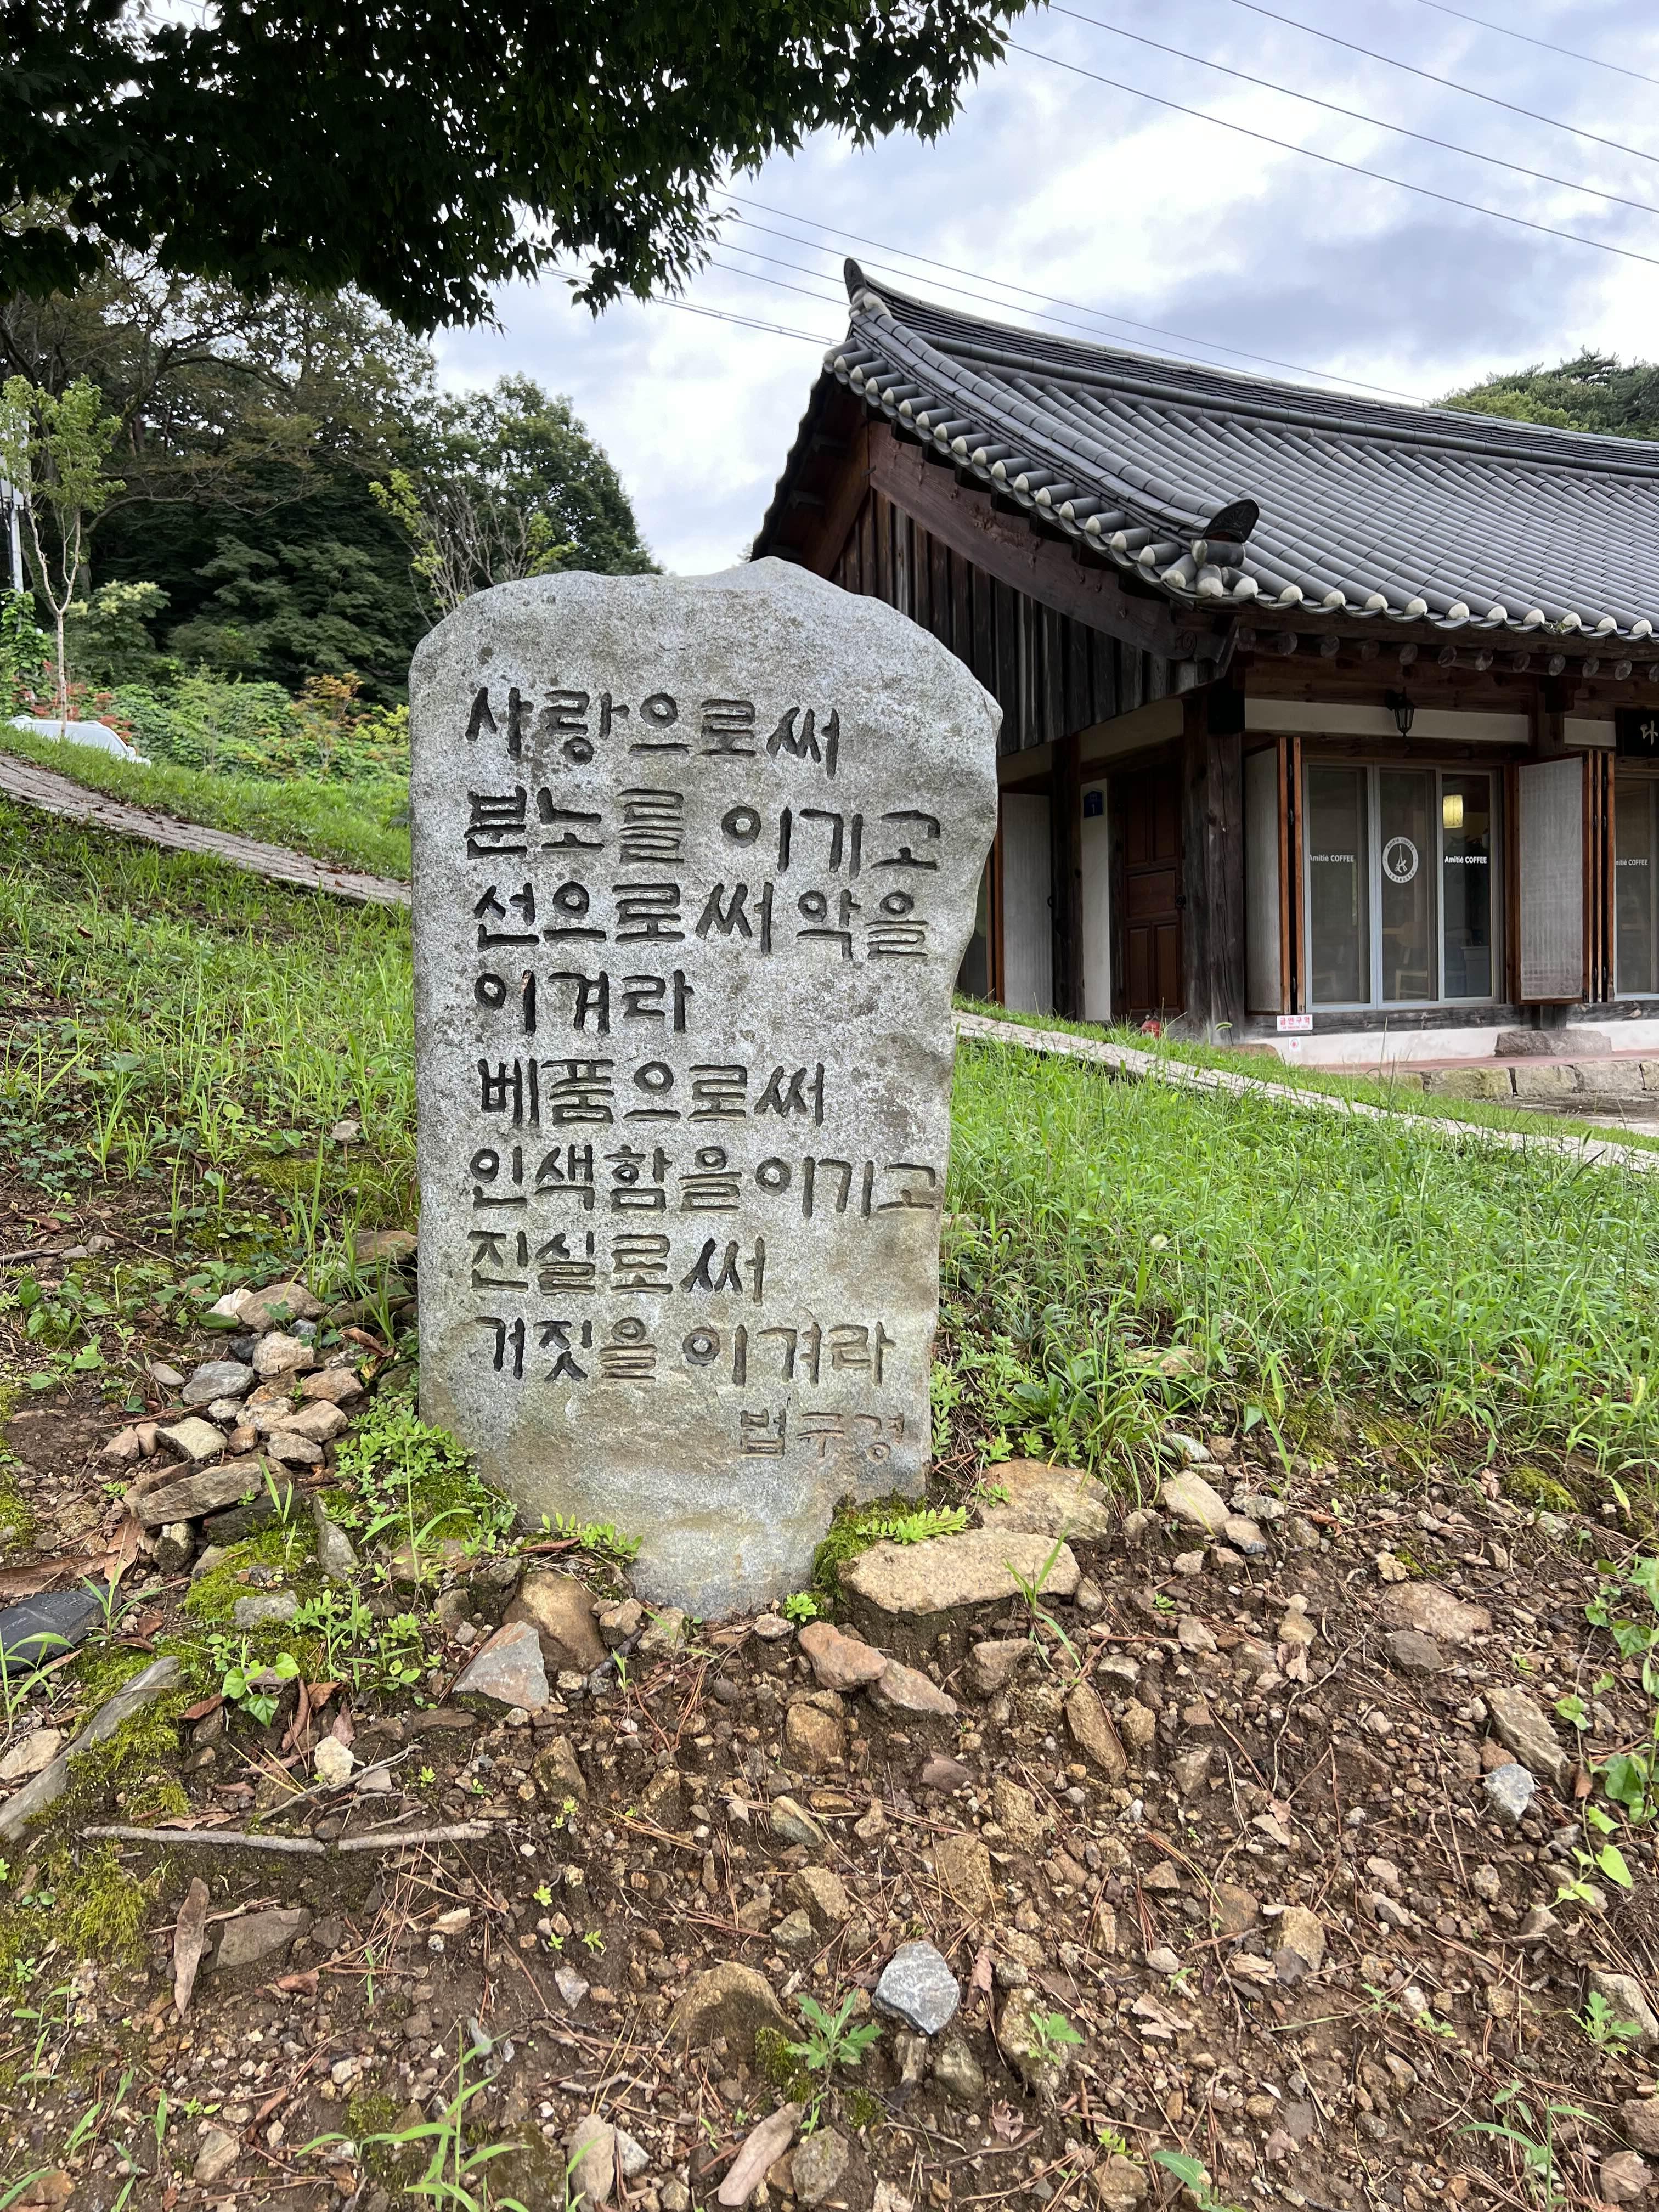 사랑으로써
분노를 이기고
선으로써 악을
이겨라
베품으로써
인색함을 이기고
진실로써
거짓을 이겨라
법구경
Amitié COFFEE
Amitié COFFEE
COFFEE
금연구역